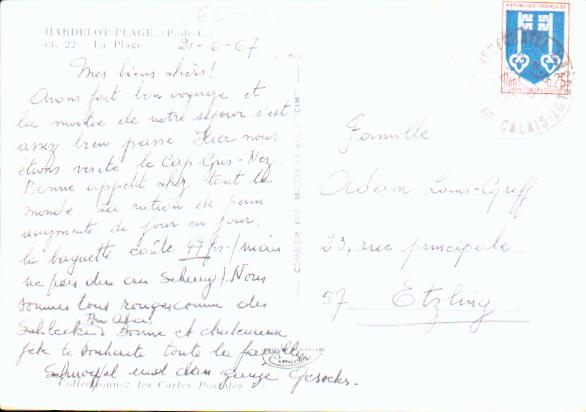 HARDELOT-PLAGE (P.-de-C.)
ct. 22 - La Plage
21-6-67
Mes biens chers!
Avons fait bon voyage et
la moitié de notre séjour s'est
assez bien passé. Hier nous
étions visité le Cap-Gris-Nez.
Bonne appétit chez tout le
monde. La ration de pain
augmente de jour en jour,
la baguette coûte 49 frs. (mais
ne pas dire au Schang) Nous
sommes tous rouges comme des
Bonne et chaleureuse
fête te souhaite toute la famille
und den ganze Gesocks.
Collectionnez les Cartes Postales
COMBIER IMP. MACON
CIM
REPUBLIQUE FRANCAISE
0,25
CALAIS
Famille
Adam Louis-Greff
23, rue principale
57 Etzling